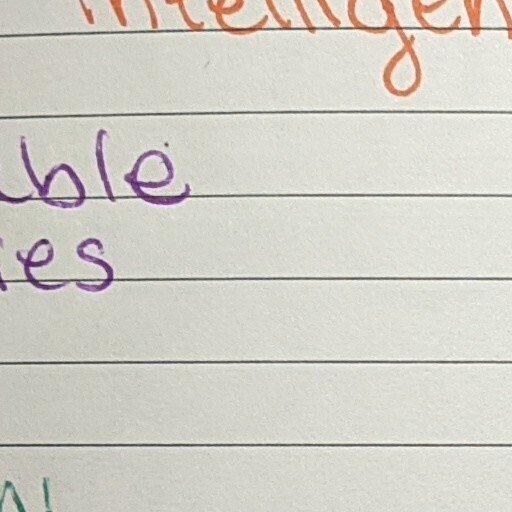 intelligen
able
ies